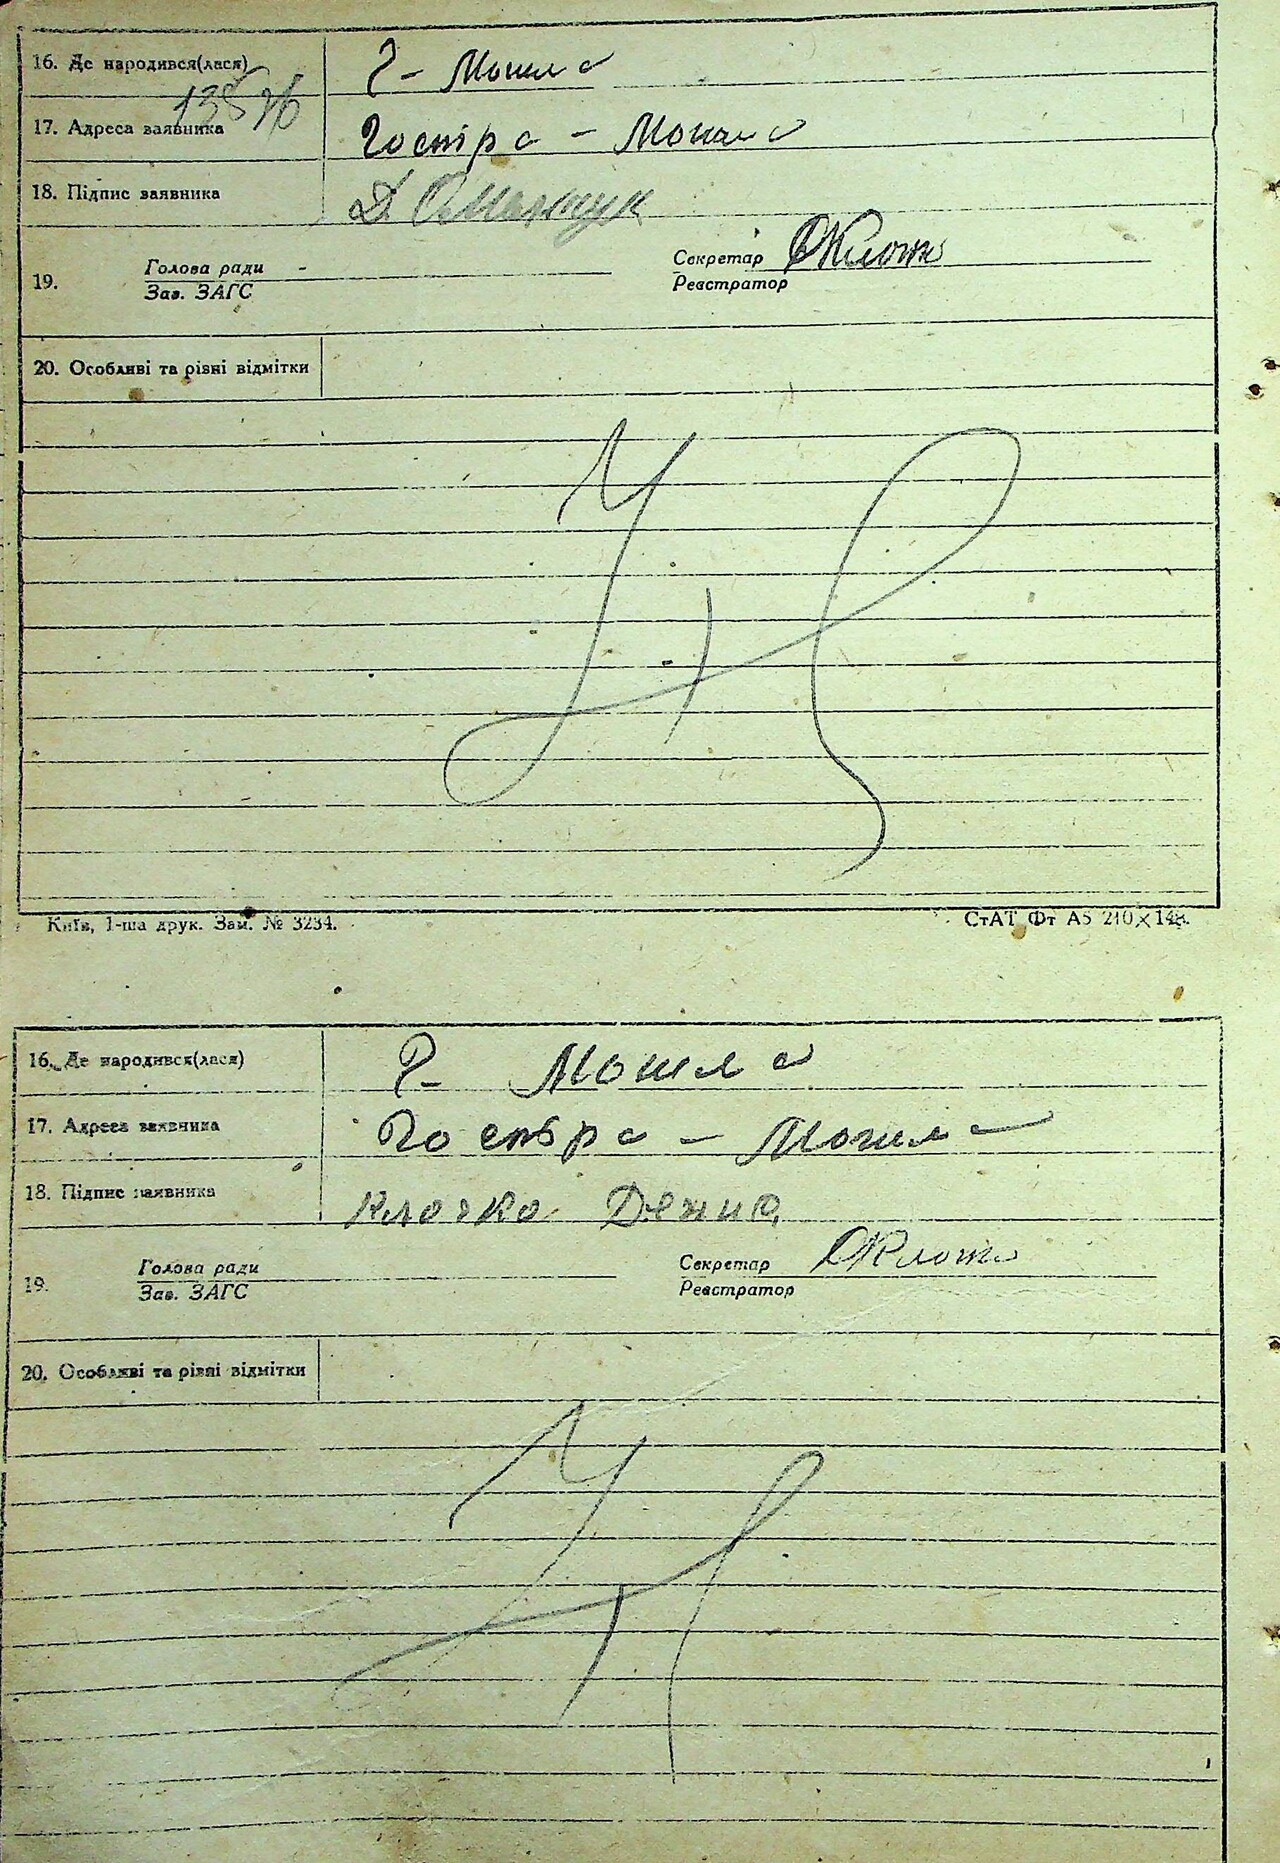 16. Де народився(лася) Г- Могила
138
17. Адреса заявника Гостра - Могила
18. Підпис заявника Д.
19. Голова ради Секретар
Зав. ЗАГС Реєстратор
20. Особливі та рівні відмітки
Київ, 1-ша друк. Зам. № 3234. СтАТ Фт А5 210×148.
16. Де народився(лася) Г- Могила
17. Адреса заявника Гостра - Могила
18. Підпис заявника Клочко
19. Голова ради Секретар
Зав. ЗАГС Реєстратор
20. Особливі та рівні відмітки